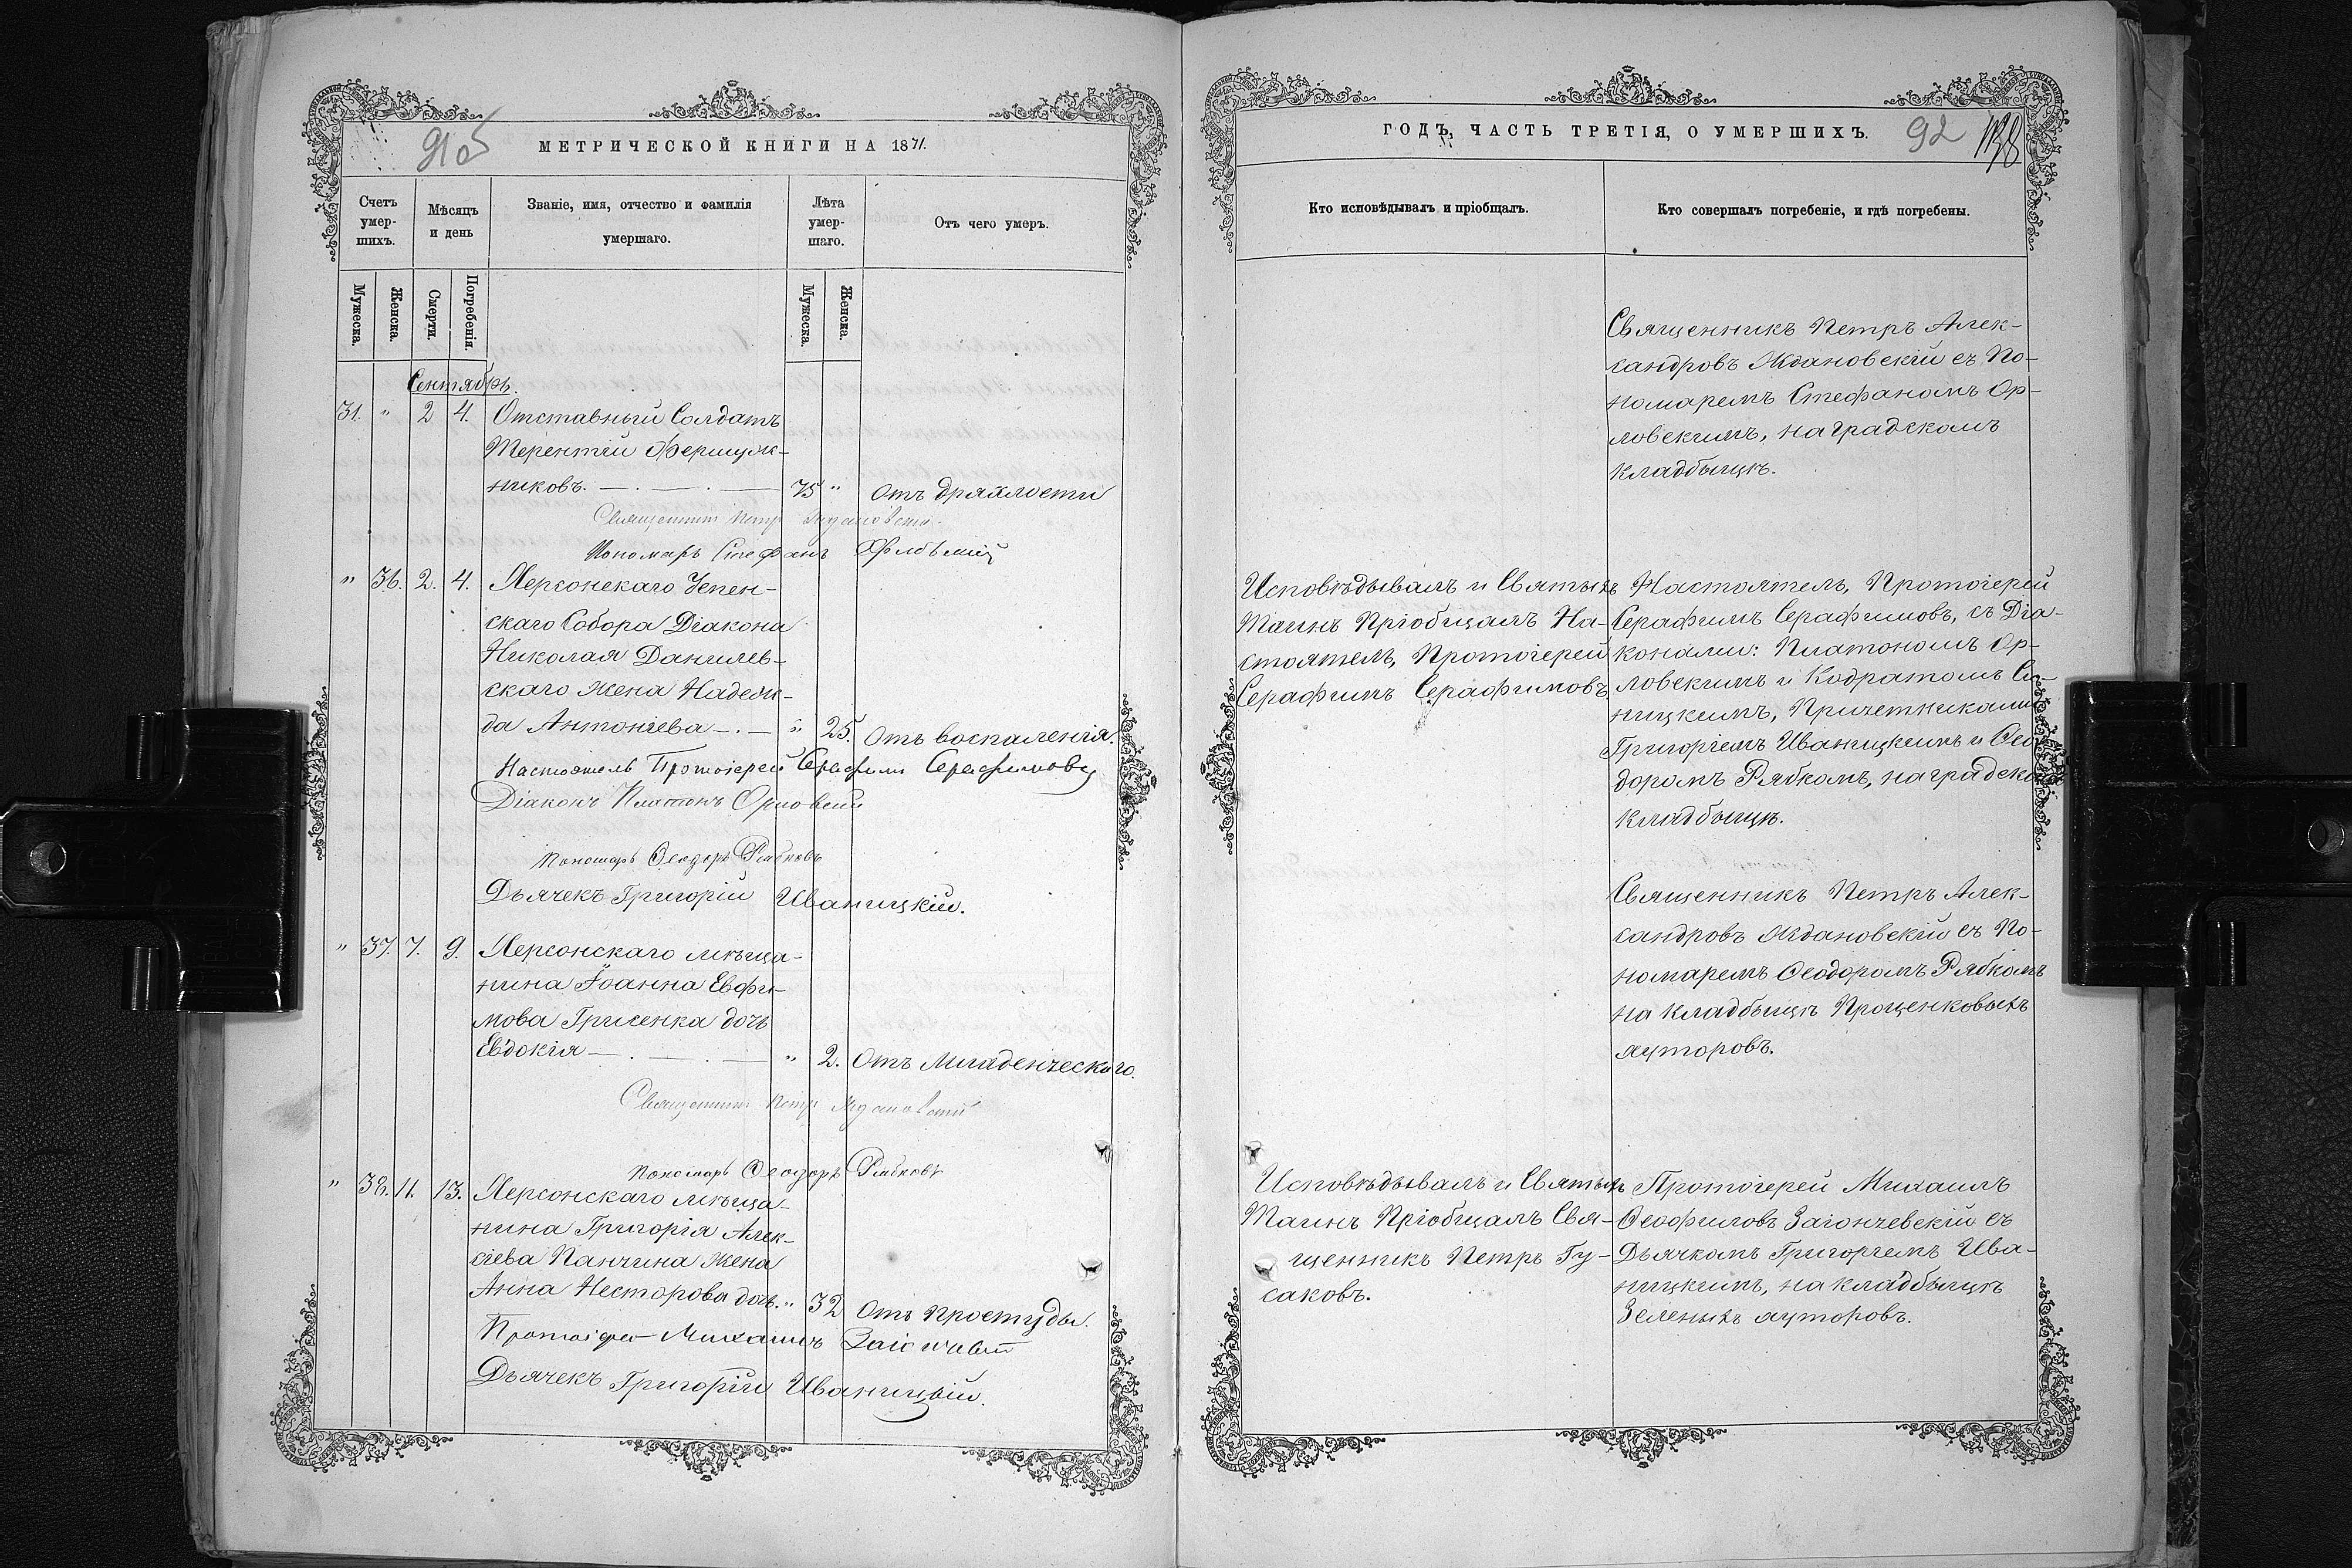 91об
МЕТРИЧЕСКОЙ КНИГИ НА 1871.
Счетъ умер-шихъ.
Мѣсяцъ и день
Званіе, имя, отчество и фамилія умершаго.
Лѣта умер-шаго.
Отъ чего умеръ.
Мужеска.
Женска.
Смерти.
Погребенія.
Мужеска.
Женска.
Сентябрь.
31. " 2 4. Отставный Солдатъ
Терентій Фершуж-
никовъ. — . — . — 75 " Отъ дряхлости
Священник Петр Ждановский
Пономарь Стефанъ Орловскій
" 36. 2. 4. Херсонскаго Успен-
скаго Собора Діакона
Николая Данилев-
скаго жена Надеж-
да Антоніева — . — " 25. Отъ воспаленія.
Настоятель Протоіерей Серафимъ Серафимовъ
Діаконъ Платонъ Орловскій
Пономарь Ѳеодоръ Рябковъ
Дьячекъ Григорій Иваницкій.
" 37. 7. 9. Херсонскаго мѣща-
нина Іоанна Евфи-
мова Грисенка дочь
Евдокія — . — . — " 2. Отъ Младенческаго.
Священник Петр Ждановский
Пономарь Ѳеодоръ Рябковъ
" 38. 11. 13. Херсонскаго мѣща-
нина Григорія Алек-
сіева Панчина жена
Анна Несторова дочь. " 32 Отъ простуды.
Протоіерей Михаилъ
Дьячекъ Григорій Иваницкій.
ГОДЪ, ЧАСТЬ ТРЕТІЯ, О УМЕРШИХЪ.
92
Кто исповѣдывалъ и пріобщалъ.
Кто совершалъ погребеніе, и гдѣ погребены.
Священникъ Петръ Алек-
сандровъ Ждановскій съ По-
номаремъ Стефаномъ Ор-
ловскимъ, на градскомъ
кладбищѣ.
Исповѣдывалъ и Святыхъ
Таинъ Пріобщалъ На-
стоятель, Протоіерей
Серафимъ Серафимовъ
Настоятель, Протоіерей
Серафимъ Серафимовъ, съ Діа-
конами: Платономъ Ор-
ловскимъ и Кодратомъ Си-
ницкимъ, Причетниками
Григоріемъ Иваницкимъ и Ѳео-
доромъ Рябкомъ, на градском
кладбищѣ.
Священникъ Петръ Алек-
сандровъ Ждановскій съ По-
номаремъ Ѳеодоромъ Рябкомъ
на кладбищѣ Проценковыхъ
хуторовъ.
Исповѣдывалъ и Святыхъ
Таинъ Пріобщалъ Свя-
щенникъ Петръ Гу-
саковъ.
Протоіерей Михаилъ
Ѳеофиловъ Заіончевскій съ
Дьячкомъ Григоріемъ Ива-
ницкимъ, на кладбищѣ
Зеленыхъ хуторовъ.